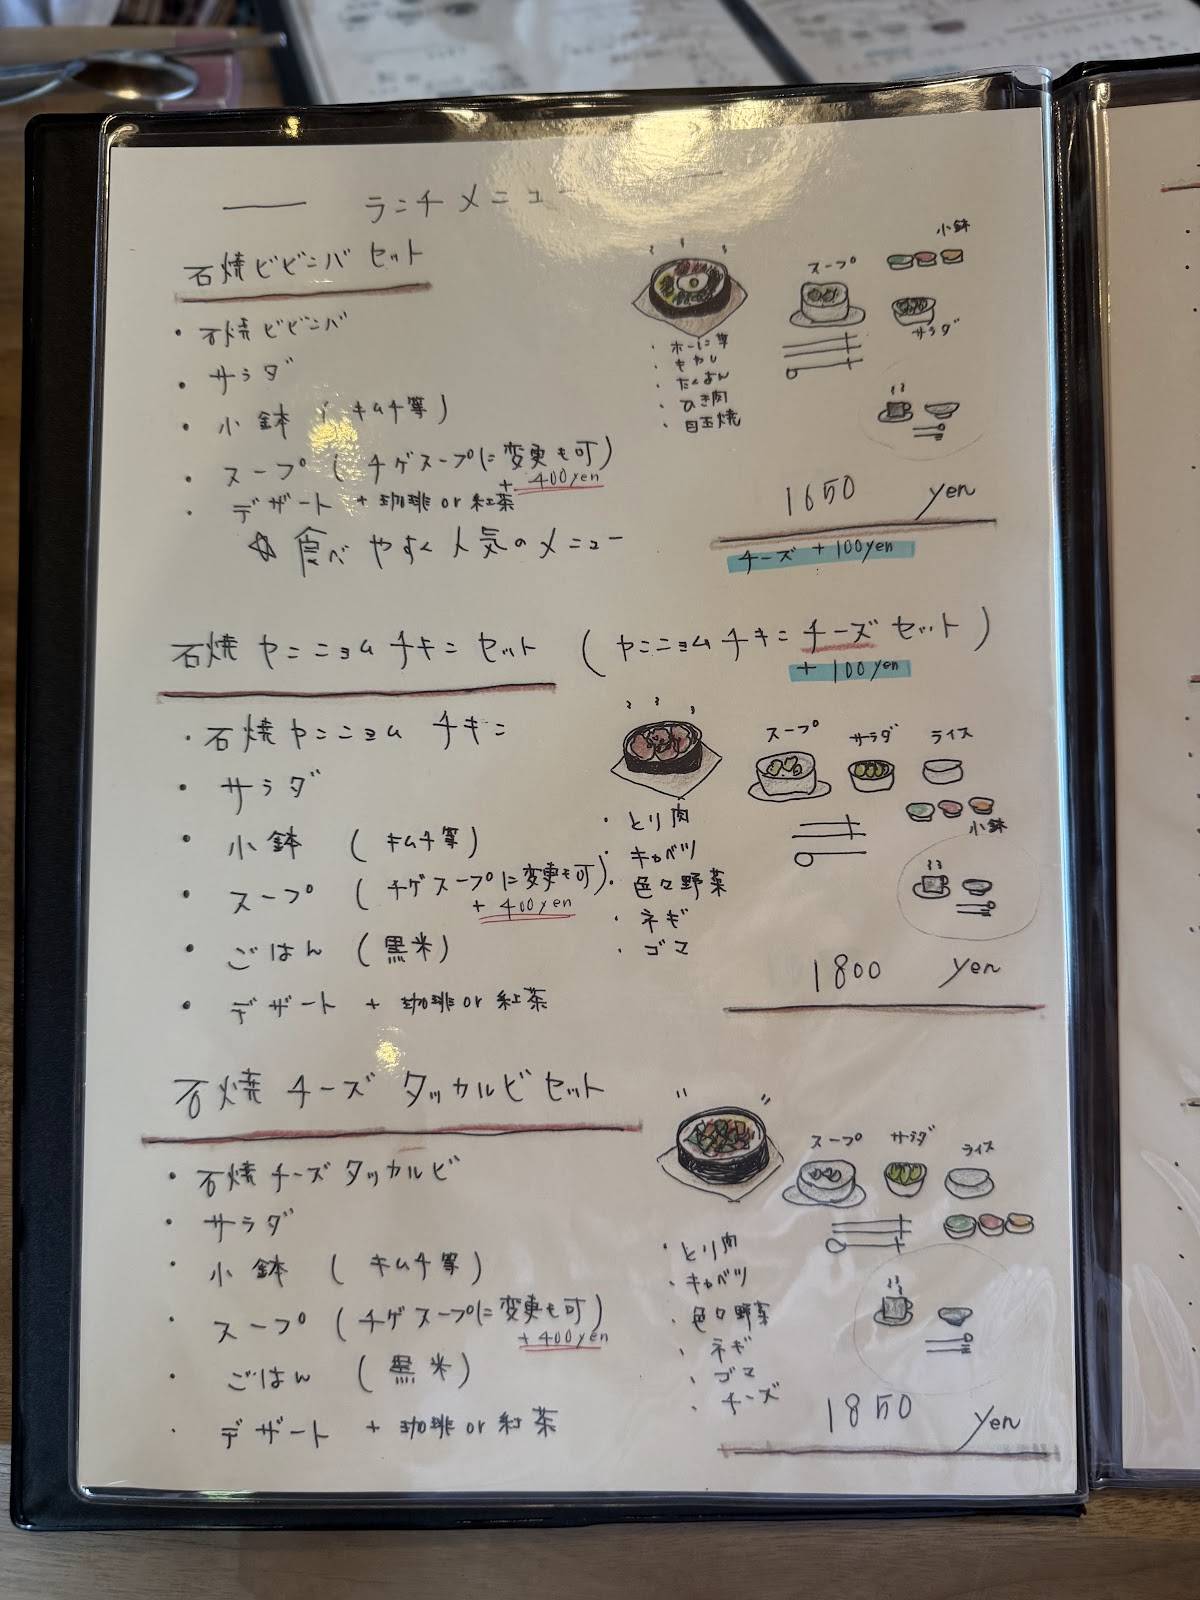 ランチメニュー
石焼ビビンバ セット
・石焼ビビンバ
・サラダ
・小鉢 (キムチ等)
・スープ (チゲスープに変更も可)
+400yen
・デザート + 珈琲 or 紅茶
☆ 食べやすく人気のメニュー
スープ
小鉢
サラダ
・ホーレン草
・もやし
・たくあん
・ひき肉
・目玉焼
1650 yen
チーズ +100yen
石焼ヤンニョムチキンセット (ヤンニョムチキンチーズセット)
+100yen
・石焼ヤンニョムチキン
・サラダ
・小鉢 (キムチ等)
・スープ (チゲスープに変更も可)
+400yen
・ごはん (黒米)
・デザート + 珈琲 or 紅茶
スープ
サラダ
ライス
小鉢
・とり肉
・キャベツ
・色々野菜
・ネギ
・ゴマ
1800 yen
石焼チーズタッカルビセット
・石焼チーズタッカルビ
・サラダ
・小鉢 (キムチ等)
・スープ (チゲスープに変更も可)
+400yen
・ごはん (黒米)
・デザート + 珈琲 or 紅茶
スープ
サラダ
ライス
・とり肉
・キャベツ
・色々野菜
・ネギ
・ゴマ
・チーズ
1850 yen